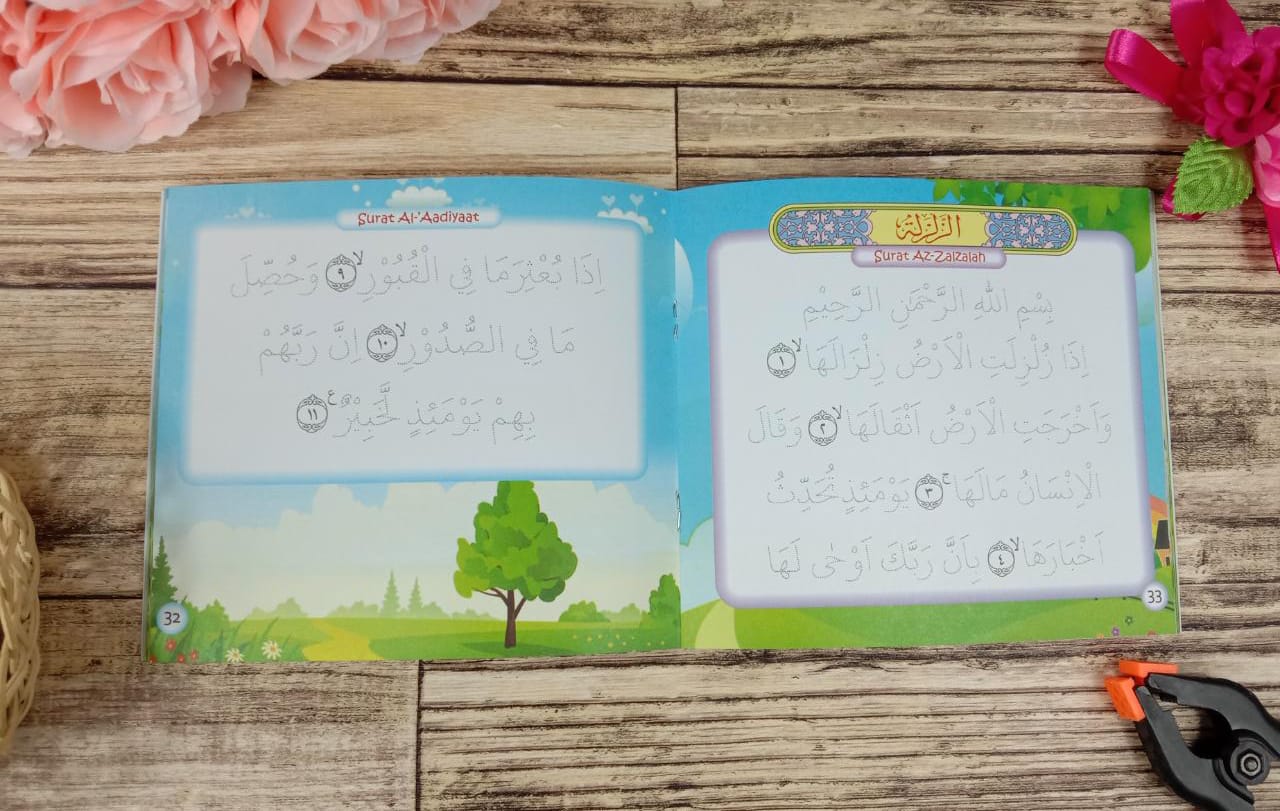 Surat Al-'Aadiyaat
اِذَا بُعْثِرَمَا فِي الْقُبُوْرِۙ ٩ وَحُصِّلَ
مَا فِي الصُّدُوْرِۙ ١٠ اِنَّ رَبَّهُمْ
بِهِمْ يَوْمَئِذٍ لَّخَبِيْرٌ ࣖ ١١
32
الزلزلة
Surat Az-Zalzalah
بِسْمِ اللهِ الرَّحْمٰنِ الرَّحِيْمِ
اِذَا زُلْزِلَتِ الْاَرْضُ زِلْزَالَهَاۙ ١
وَاَخْرَجَتِ الْاَرْضُ اَثْقَالَهَاۙ ٢ وَقَالَ
الْاِنْسَانُ مَالَهَاۚ ٣ يَوْمَئِذٍ تُحَدِّثُ
اَخْبَارَهَاۙ ٤ بِاَنَّ رَبَّكَ اَوْحٰى لَهَا
33